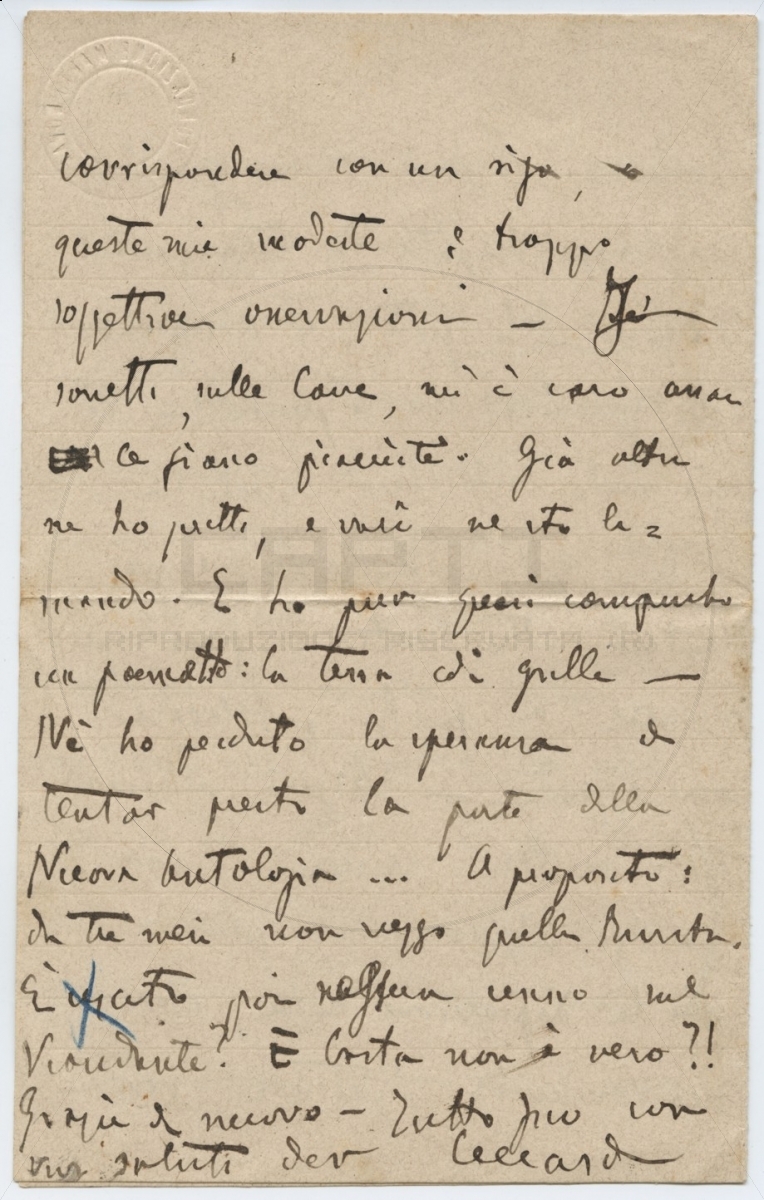 corrispondere con un rigo, a
queste mie modeste e troppo
soggettive osservazioni — I
sonetti, sulle Cave, mi è caro assai
Le siano piaciuti. Già altri
ne ho fatti, e varii ne sto li=
mando. E ho pur quasi compiuto
un poemetto: la terra dei grilli —
Nè ho perduto la speranza di
tentar presto la porta della
Nuova Antologia ... A proposito:
da tre mesi non veggo quella Rivista.
È uscito poi nessun cenno sul
Viandante? E basta non è vero?!
Grazie di nuovo — Tutto suo con
vivi saluti dev Ceccardo
CAPTI
RIPRODUZIONE RISERVATA